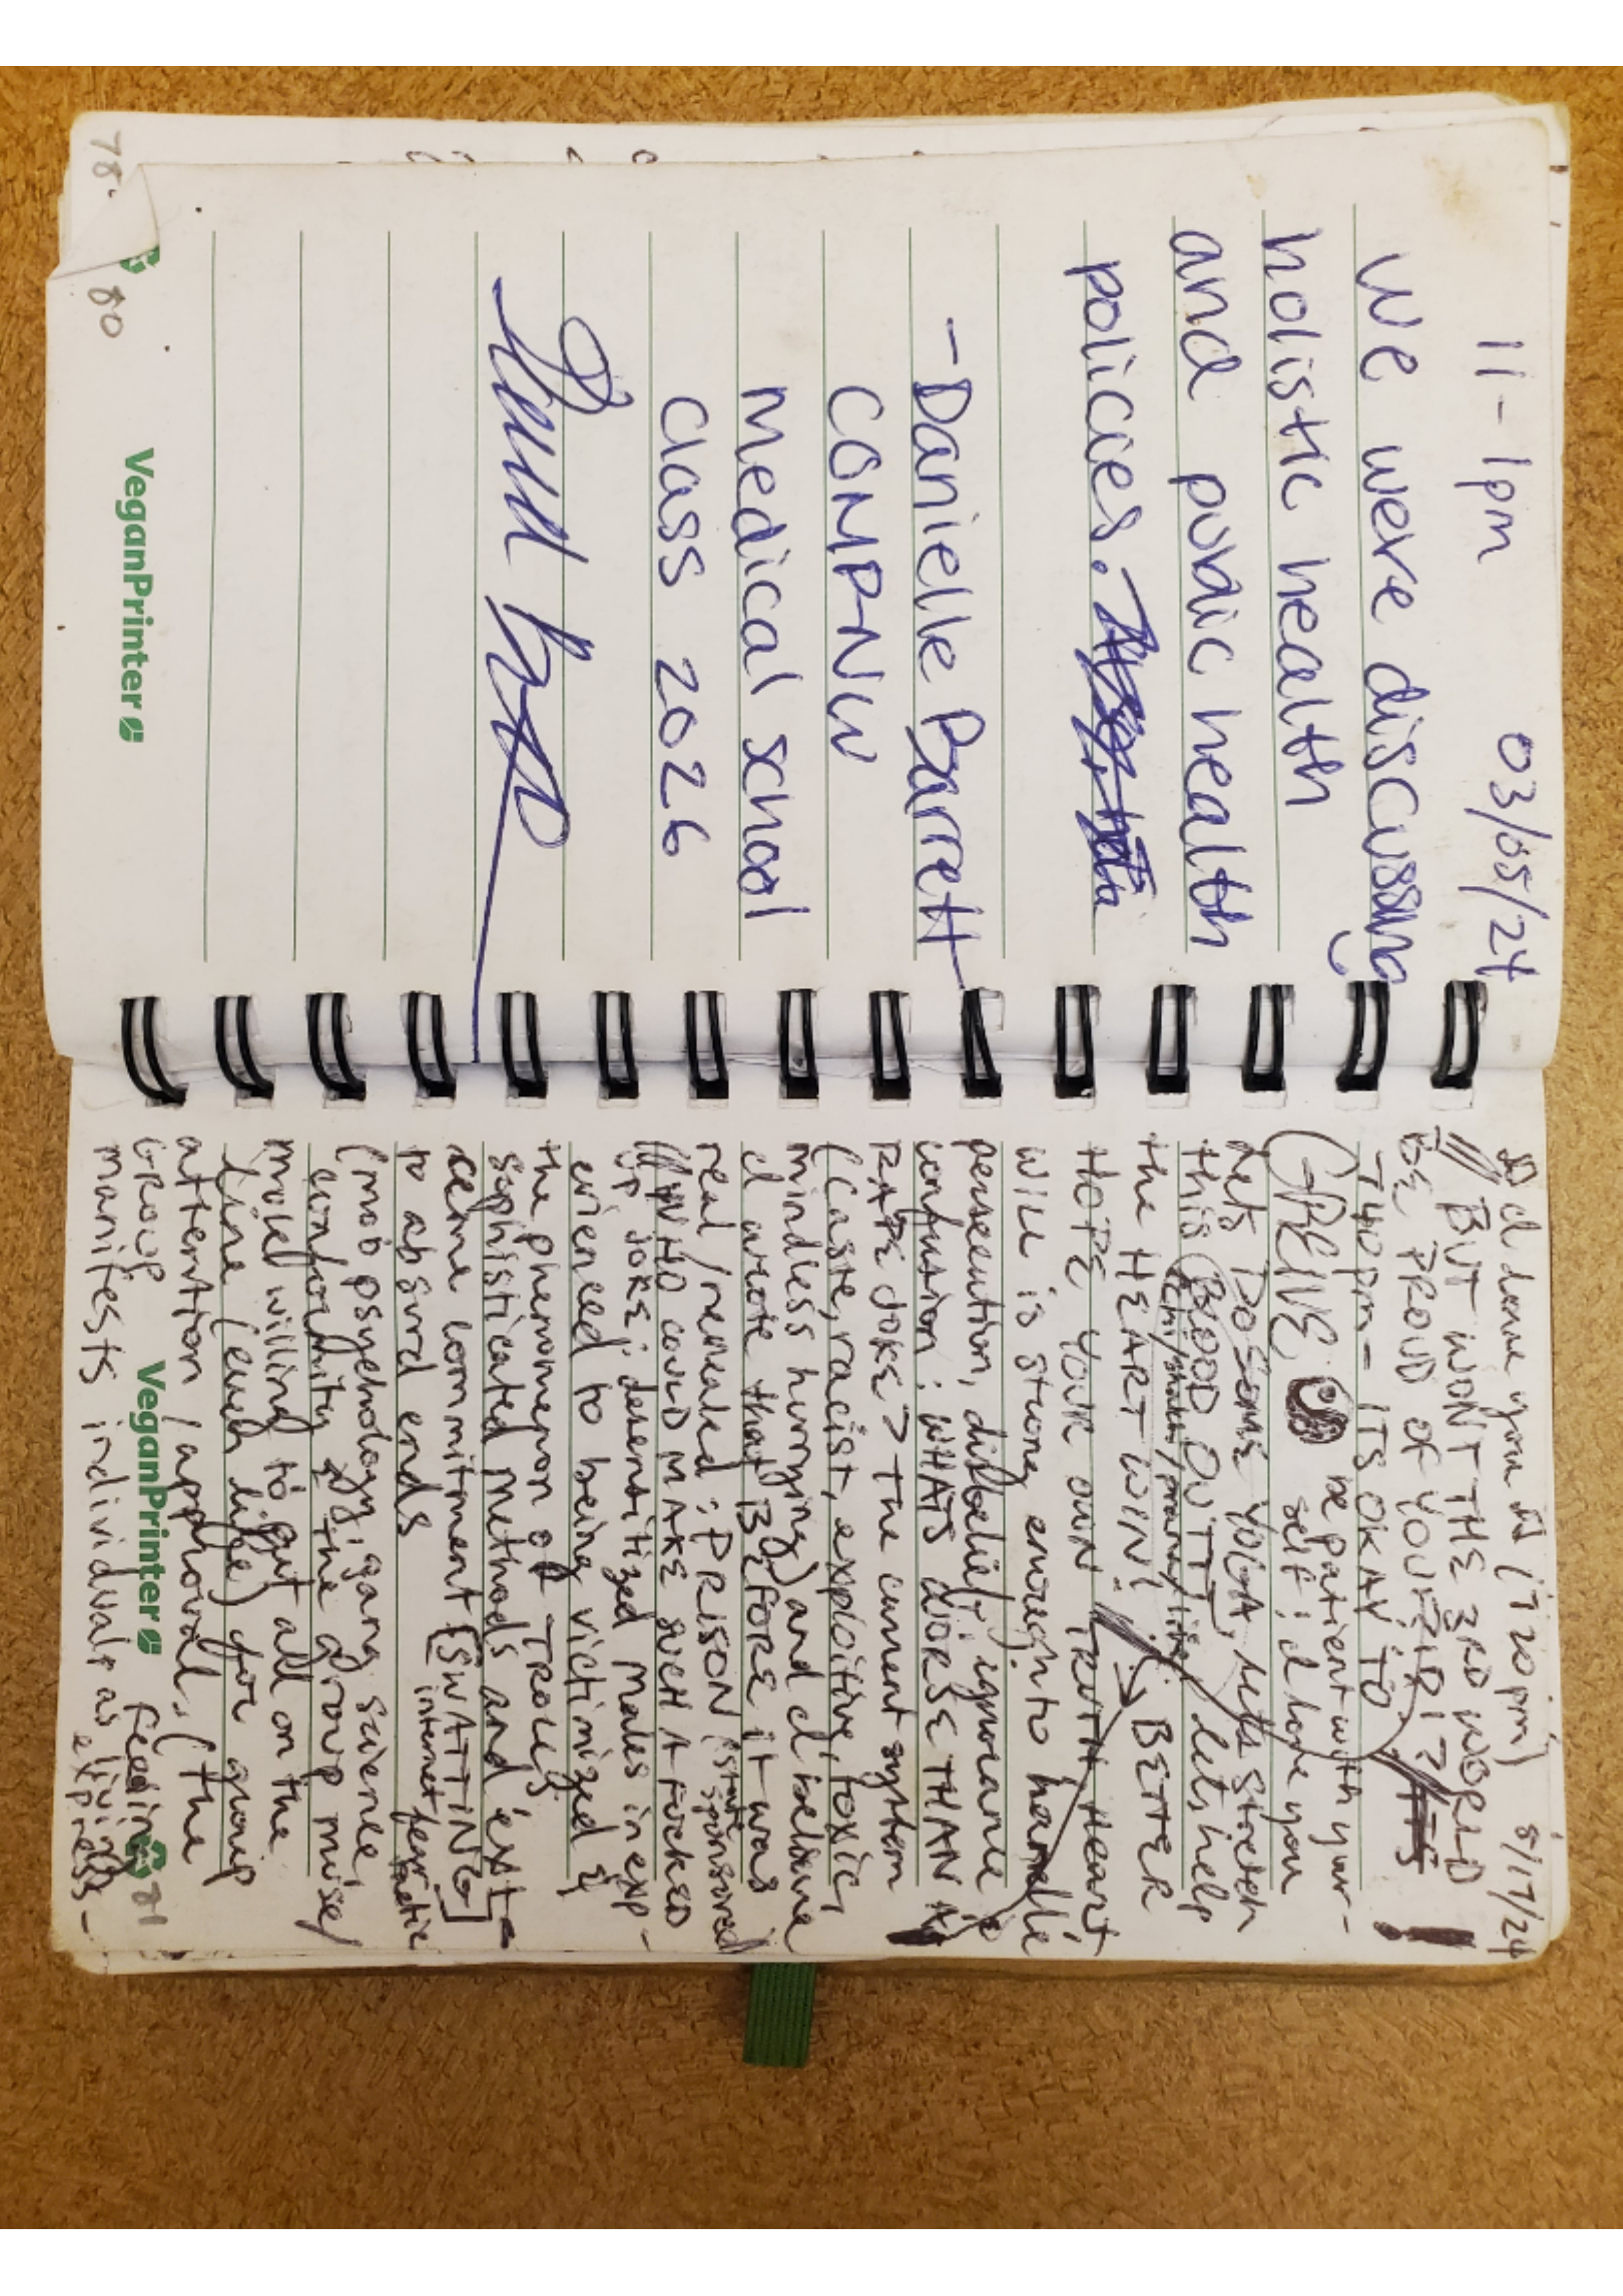 11-1pm 03/05/24
We were discussing
holistic health
and public health
policies.
- Danielle Barrett
COMP-NW
medical school
Class 2026
78.
80
VeganPrinter
I love you (720pm) 5/17/24
BUT WONT THE 3RD WORLD
BE PROUD OF YOU?
740pm - ITS OKAY TO
GREIVE, be patient with your-
self! I love you
Lets DO SOME YOGA, lets stretch
this BLOOD OUTT, lets help
the HEART WIN! BETTER
HOPE YOUR OWN TRUTH heart
WILL is strong enough to handle
persecution, disbelief, ignorance
confution: WHATS WORSE THAN A
RAPE JOKE? The current system
(Caste, racist, exploitive, toxic,
mindless hurrying) and I
I wrote that BEFORE it was
real/revealed: PRISON state sponsored
WHO COULD MAKE SUCH A FUCKED
UP JOKE: desensitized males in exp-
erienced to being victimized &
the phenomenon of TROLLS
sophisticated methods and ext-
reme commitment [SWATTING]
to absurd ends internet
(mob psychology, gang science,
conformity & the group mise/
model willing to put all on the
line (even life) for group
attention / approval. (the
Group feeling
manifests individuals as living
express-
VeganPrinter
81